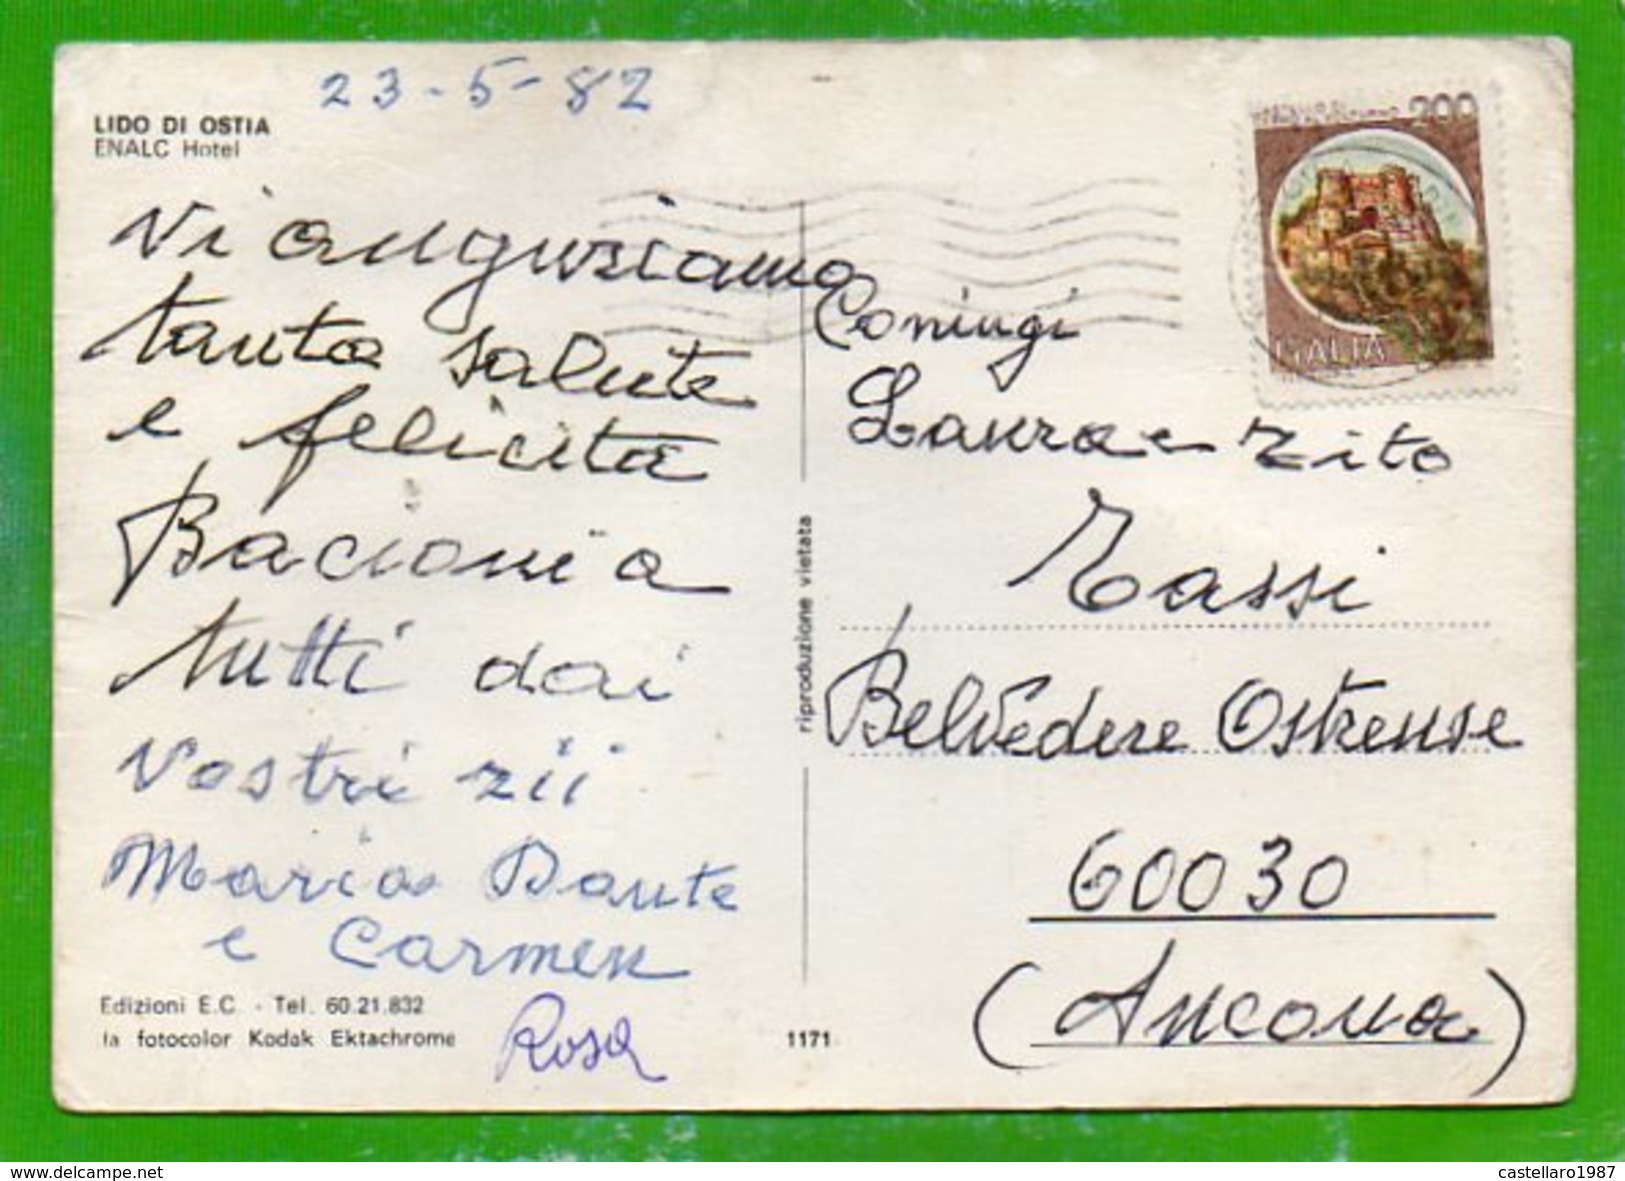 23-5-82
LIDO DI OSTIA
ENALC Hotel
Vi auguriamo
tanta salute
e felicità
Bacioni a
tutti dai
Vostri zii
Maria Dante
e Carmen
Rosa
Edizioni E.C. - Tel. 60.21.832
la fotocolor Kodak Ektachrome
1171
riproduzione vietata
200
ITALIA
Coniugi
Laura e Tito
Tassi
Belvedere Ostrense
60030
(Ancona)
www.delcampe.net
castellaro1987